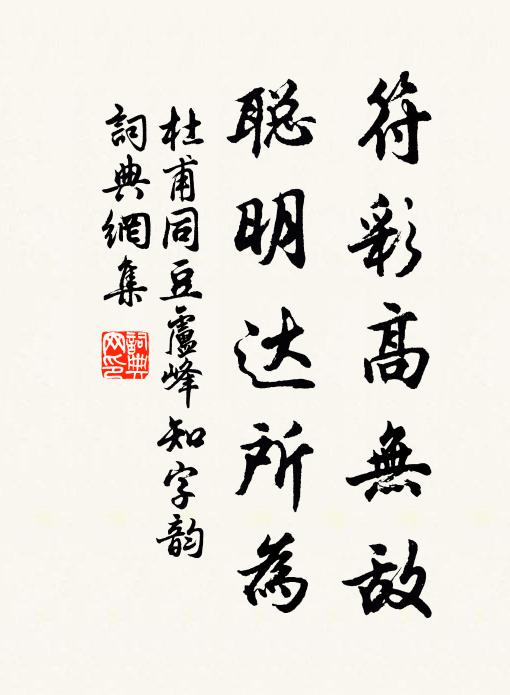 符彩高無敌
聪明达所為
杜甫同豆盧峰知字韵
詞典網集
詞典網印